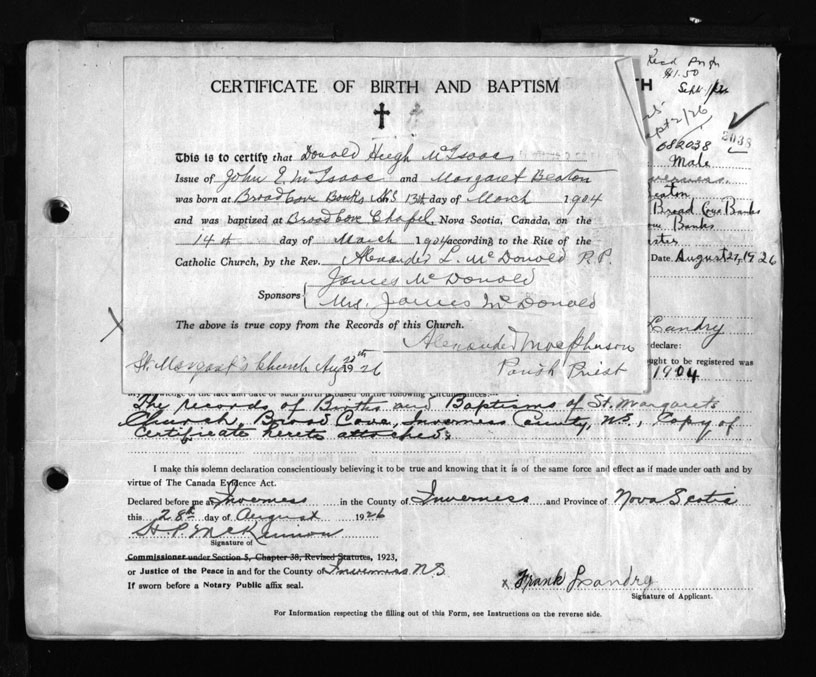 CERTIFICATE OF BIRTH AND BAPTISM
This is to certify that Donald Hugh McIsaac
Issue of John E. McIsaac and Margaret Beaton
was born at Broad Cove Banks NS 13th day of March 1904
and was baptized at Broad Cove Chapel, Nova Scotia, Canada, on the
14th day of March 1904 according to the Rite of the
Catholic Church, by the Rev. Alexander L. McDonald R.P.
Sponsors { James McDonald
Mrs. James McDonald
The above is true copy from the Records of this Church.
Alexander Macpherson
St. Margaret's Church Aug 1926 Parish Priest
TH
Recd
$1.50
Sept.
Sept 2/26
3038
082038
Male
Inverness
Beaton
Broad Cove Banks
Banks
Date. August 1926
Landry
declare:
ought to be registered was
1904
The records of Births and Baptisms of St. Margarets
Church, Broad Cove, Inverness County, N.S., Copy of
Certificate hereto attached.
I make this solemn declaration conscientiously believing it to be true and knowing that it is of the same force and effect as if made under oath and by
virtue of The Canada Evidence Act.
Declared before me at Inverness in the County of Inverness and Province of Nova Scotia
this 28th day of August 1926
Signature of
Commissioner under Section 5, Chapter 38, Revised Statutes, 1923,
or Justice of the Peace in and for the County of Inverness N.S.
If sworn before a Notary Public affix seal.
x Frank Landry
Signature of Applicant.
For Information respecting the filling out of this Form, see Instructions on the reverse side.